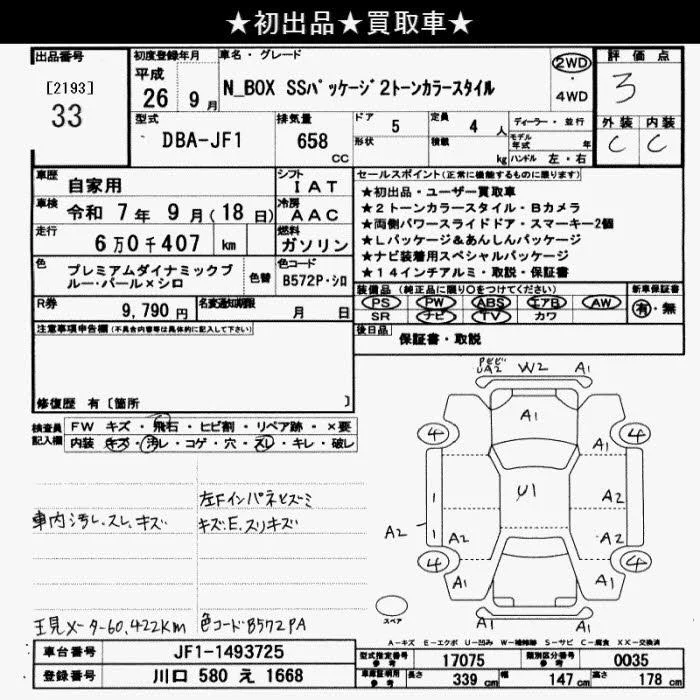 ★初出品★買取車★
出品番号
[2193]
33
初度登録年月
平成
26 9月
車名・グレード
N_BOX SSパッケージ2トーンカラースタイル
2WD
・
4WD
評価点
3
外装 内装
C C
型式
DBA-JF1
排気量
658
CC
ドア 5
形状
定員 4 人
積載 kg
ディーラー・並行
モデル
年式 年
ハンドル 左・右
車歴 自家用
シフト IAT
車検 令和 7年 9月(18日)
冷房 AAC
走行 6万0千407 km
燃料 ガソリン
色 プレミアムダイナミックブ
ルー・パール×シロ
色替
色コード
B572P・シロ
R券 9,790円
名変通知期限 月 日
セールスポイント(正常に機能するものに限ります)
★初出品・ユーザー買取車
★2トーンカラースタイル・Bカメラ
★両側パワースライドドア・スマーキー2個
★Lパッケージ&あんしんパッケージ
★ナビ装着用スペシャルパッケージ
★14インチアルミ・取説・保証書
装備品(純正品に限り○をつけてください)
PS PW ABS エアB AW
SR ナビ TV カワ
新車保証書
有・無
後日品 保証書・取説
注意事項申告欄(不具合内容等は具体的に記入して下さい)
修復歴 有〔箇所 〕
検査員
記入欄
FW キズ・飛石・ヒビ割・リペア跡・×要
内装 キズ・汚レ・コゲ・穴・スレ・キレ・破レ
車内汚レ.スレ.キズ
左Fインパネビズミ
キズ.E.スリキズ
現メーター60,422Km
色コードB572PA
UA2 W2 A1
A1
4 4
A1
U1
A2
A2 A2
A2
4 4
A1 A1
A1 A1
スペア
A-キズ E-エクボ U-凹み W-補修跡 S-サビ C-腐食 XX-交換済
車台番号 JF1-1493725
登録番号 川口 580 え 1668
型式指定番号
参考
17075
類別区分番号
参考
0035
車庫証明用
参考
長さ 339 cm 幅 147 cm 高さ 178 cm